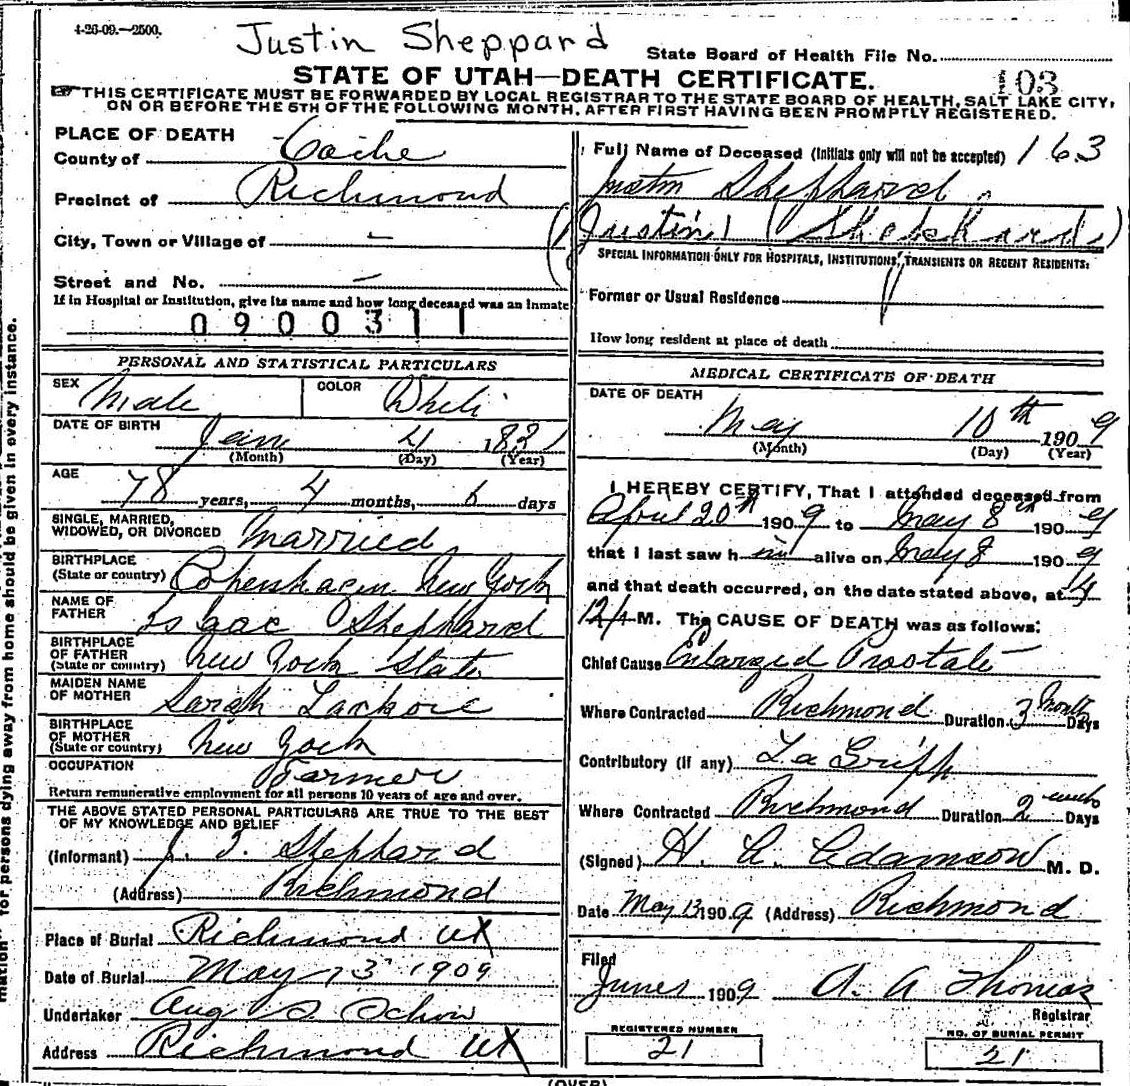 4-26-09.—2500.
Justin Sheppard
State Board of Health File No.
STATE OF UTAH—DEATH CERTIFICATE.
103
THIS CERTIFICATE MUST BE FORWARDED BY LOCAL REGISTRAR TO THE STATE BOARD OF HEALTH, SALT LAKE CITY,
ON OR BEFORE THE 5TH OF THE FOLLOWING MONTH, AFTER FIRST HAVING BEEN PROMPTLY REGISTERED.
PLACE OF DEATH
County of Cache
Precinct of Richmond
City, Town or Village of —
Street and No. —
If in Hospital or Institution, give its name and how long deceased was an Inmate
0900311
PERSONAL AND STATISTICAL PARTICULARS
SEX Male COLOR White
DATE OF BIRTH Jan 4 1831
(Month) (Day) (Year)
AGE 78 years, 4 months, 6 days
SINGLE, MARRIED,
WIDOWED, OR DIVORCED Married
BIRTHPLACE
(State or country) Copenhagen New York
NAME OF
FATHER Isaac Shephard
BIRTHPLACE
OF FATHER
(State or country) New York State
MAIDEN NAME
OF MOTHER Sarah
BIRTHPLACE
OF MOTHER
(State or country) New York
OCCUPATION Farmer
Return remunerative employment for all persons 10 years of age and over.
THE ABOVE STATED PERSONAL PARTICULARS ARE TRUE TO THE BEST
OF MY KNOWLEDGE AND BELIEF
(Informant) J. J. Shephard
(Address) Richmond
Place of Burial Richmond Ut
Date of Burial May 13 1909
Undertaker Aug S. Schow
Address Richmond Ut
Full Name of Deceased (Initials only will not be accepted) 163
Justin Shephard
(Justin) (Shephard)
SPECIAL INFORMATION ONLY FOR HOSPITALS, INSTITUTIONS, TRANSIENTS OR RECENT RESIDENTS:
Former or Usual Residence
How long resident at place of death
MEDICAL CERTIFICATE OF DEATH
DATE OF DEATH
May 10th 1909
(Month) (Day) (Year)
I HEREBY CERTIFY, That I attended deceased from
April 20th 1909 to May 8th 1909
that I last saw him alive on May 8 1909
and that death occurred, on the date stated above, at 4
M. The CAUSE OF DEATH was as follows:
Chief Cause Enlarged Prostate
Where Contracted Richmond Duration 3 months Days
Contributory (if any) La Gripp
Where Contracted Richmond Duration 2 weeks Days
(Signed) H. A. Adamson M. D.
Date May 13 1909 (Address) Richmond
Filed
June 1 1909 A. A. Thomas
Registrar
REGISTERED NUMBER
21
NO. OF BURIAL PERMIT
21
(OVER)
for persons dying away from home should be given in every instance.